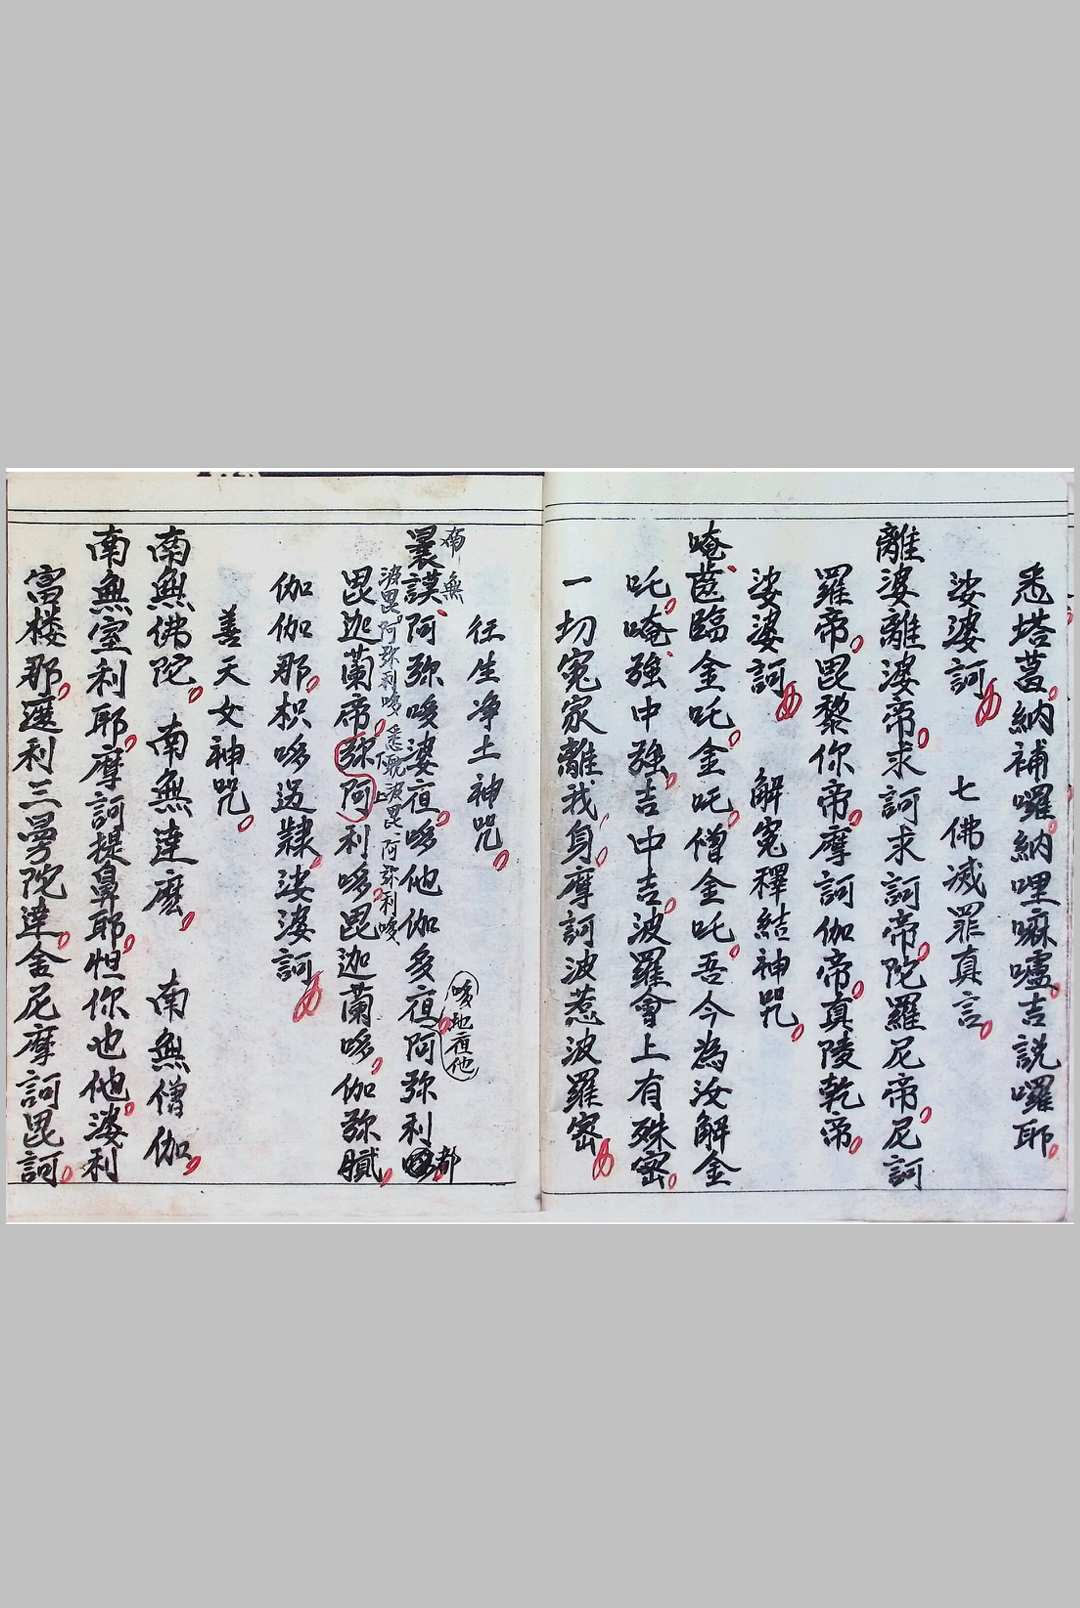 悉塔葛納補囉納哩嘛嚧吉説囉耶
娑婆訶　七佛滅罪真言
離婆離婆帝求訶求訶帝陀羅尼帝尼訶
羅帝毘黎你帝摩訶伽帝真陵乾帝
娑婆訶　解冤釋結神咒
唵齒臨金吒金吒僧金吒吾今為汝解金
吒唵強中強吉中吉波羅會上有殊密
一切冤家離我身摩訶波惹波羅密
往生净土神咒
南無
曩謨阿弥哆婆夜哆他伽多夜阿弥利都
哆地夜他
婆毘阿弥利哆悉耽婆毘阿弥利哆
毘迦蘭帝弥阿利哆毘迦蘭哆伽弥膩
下上
伽伽那枳哆迦隸娑婆訶
善天女神咒
南無佛陀　南無達麽　南無僧伽
南無室利耶摩訶提鼻耶怛你也他婆利
富楼那遮利三曼陀達舍尼摩訶毘訶